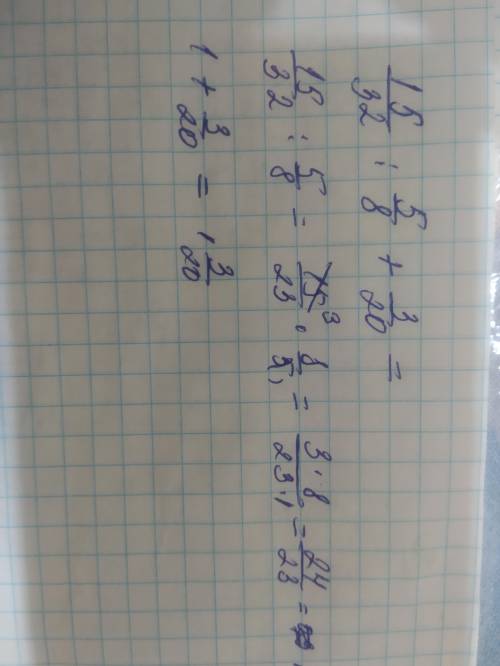 15/32 : 5/8 + 3/20 =
15/32 : 5/8 = 15 3/23 · 8/5 1 = 3·8/23·1 = 24/23 =
1 + 3/20 = 1 3/20